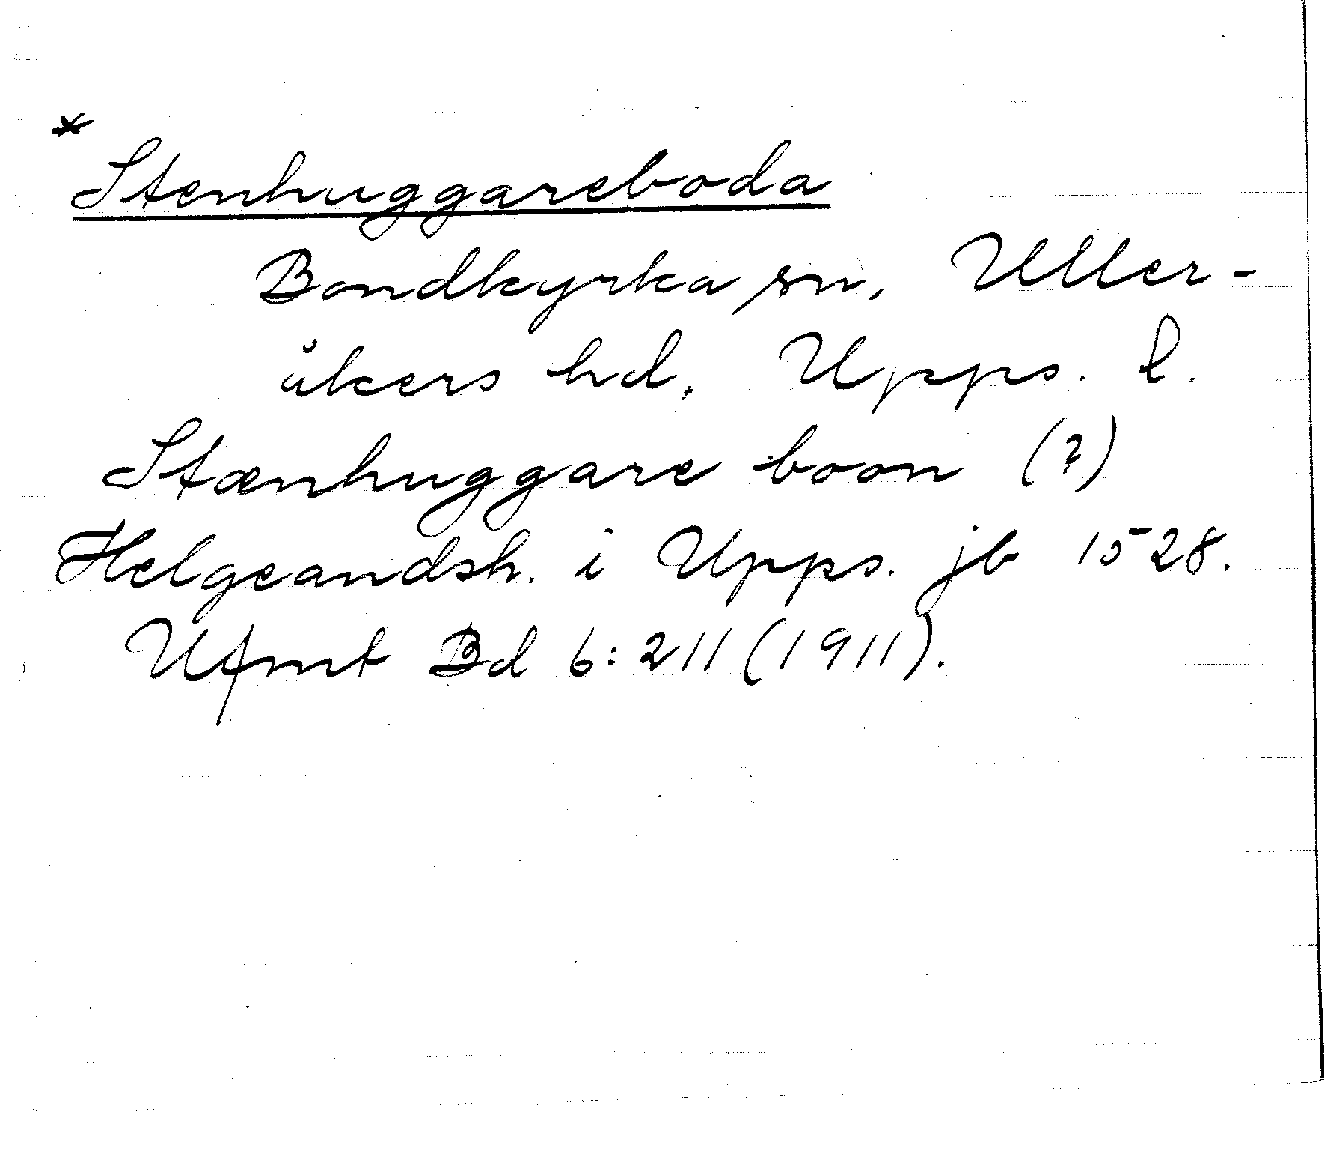 *
Stenhuggareboda
Bondkyrka sn, Uller-
åkers hd, Upps. l.
Stænhuggare boon (?)
Helgeandsh. i Upps. jb 1528.
Ufmt Bd 6:211 (1911).